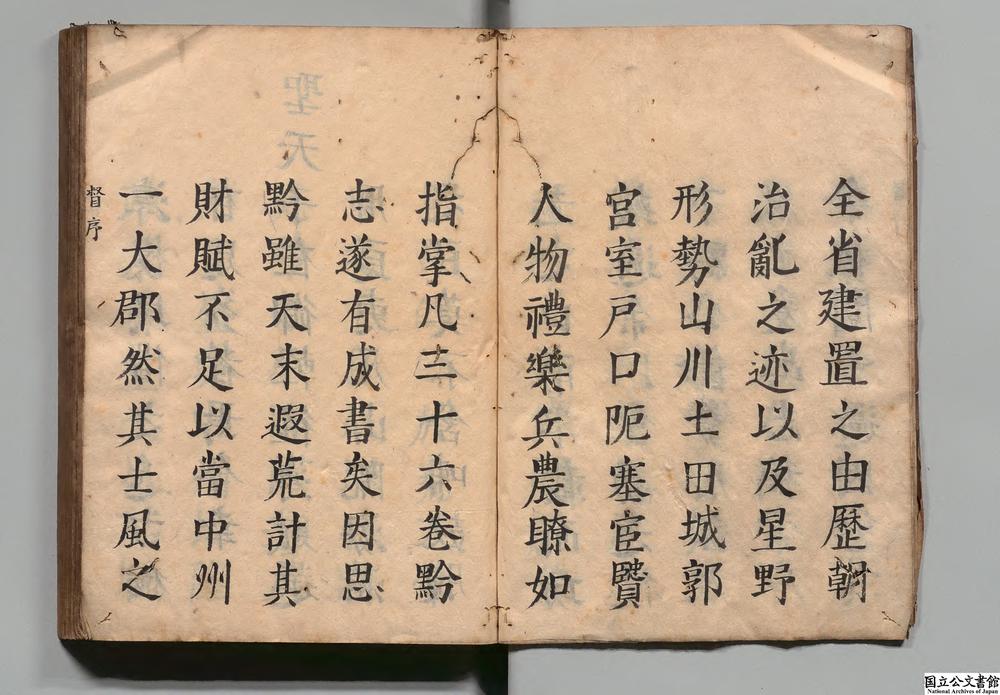 全省建置之由歷朝
治亂之迹以及星野
形勢山川土田城郭
宮室戶口阨塞宦贒
人物禮樂兵農瞭如
指掌凡三十六卷黔
志遂有成書矣因思
黔雖天末遐荒計其
財賦不足以當中州
一大郡然其士風之
督序
国立公文書館
National Archives of Japan